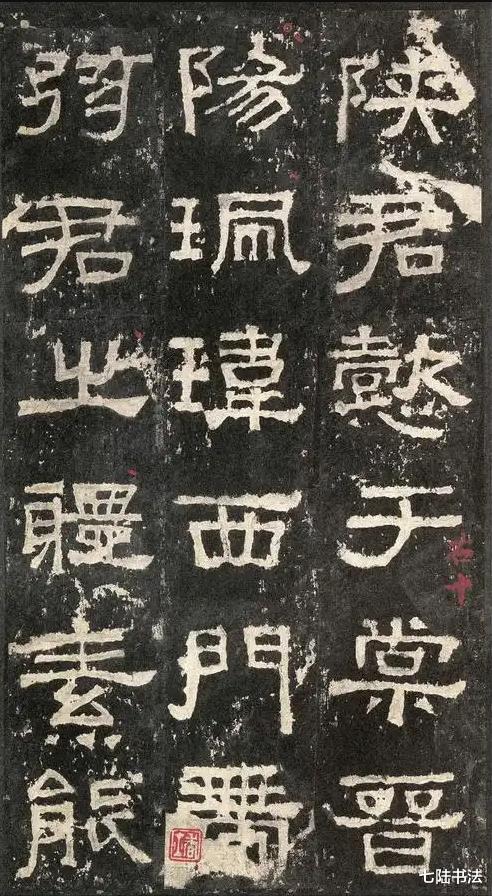 陜君懿于棠晉
陽珮瑋西門帶
弦君之體素能
七陆书法